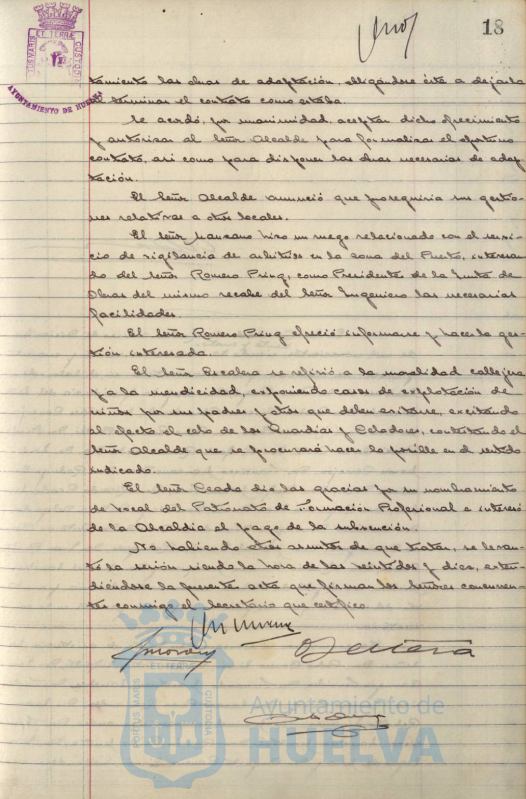 18
PORTUS MARIS ET TERRAE CUSTODIA
AYUNTAMIENTO DE HUELVA
tamiento las obras de adaptación, obligándose éste a dejarla
al terminar el contrato como estaba.
Se acordó, por unanimidad, aceptar dicho ofrecimiento
y autorizar al Señor Alcalde para formalizar el oportuno
contrato, así como para disponer las obras necesarias de adap
tación.
El Señor Alcalde anunció que proseguiría sus gestio
nes relativas a otros locales.
El Señor Manzano hizo un ruego relacionado con el servi
cio de vigilancia de arbitrios en la zona del Puerto, interesan
do del Señor Romero Pring, como Presidente de la Junta de
Obras del mismo recabe del Señor Ingeniero las necesarias
facilidades.
El Señor Romero Pring ofreció informarse y hacer la ges
tión interesada.
El Señor Escalera se refirió a la moralidad callejera
y a la mendicidad, exponiendo casos de explotación de
niños por sus padres y otros que deben evitarse, excitando
al efecto el celo de los Guardias y Celadores, contestando el
Señor Alcalde que se procurará hacer lo posible en el sentido
indicado.
El Señor dio las gracias por su nombramiento
de Vocal del Patronato de Formación Profesional e interesó
de la Alcaldía el pago de la subvención.
No habiendo otros asuntos de que tratar, se levan
tó la sesión siendo la hora de las veintidós y diez, exten
diéndose la presente acta que firman los Señores concurren
tes conmigo el Secretario que certifico.
PORTUS MARIS ET TERRAE CUSTODIA
Ayuntamiento de
HUELVA